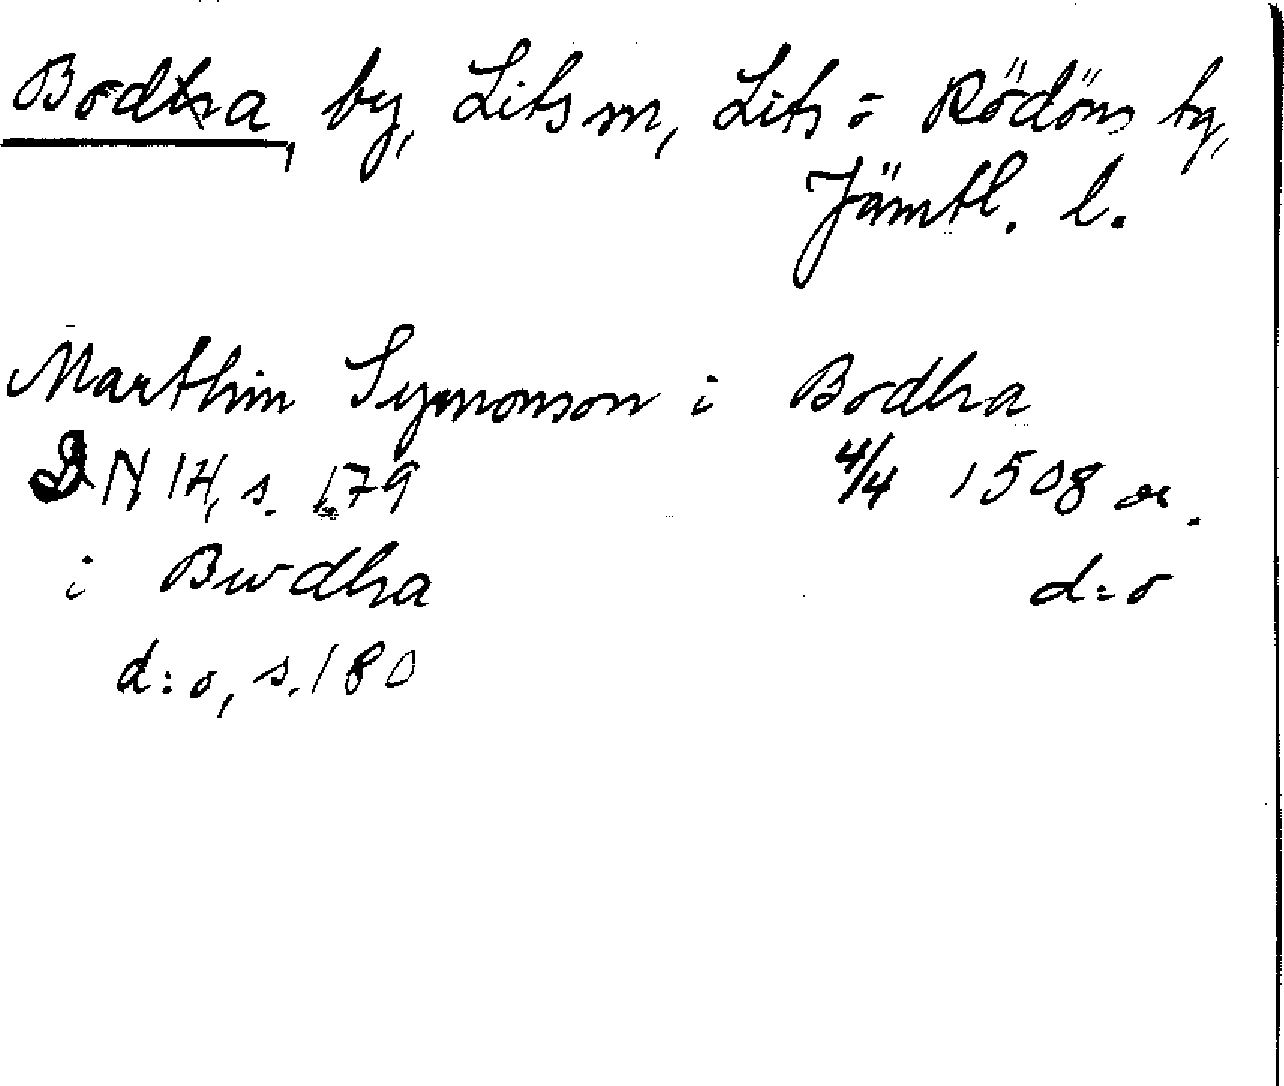 Bodha, by, Lits m, Lits o Rödöns tg,
Jämtl. l.
Marthin Symonson i Bodha
DN 14, s. 179 4/4 1508 or.
i Bwdha d:o
d:o, s. 180